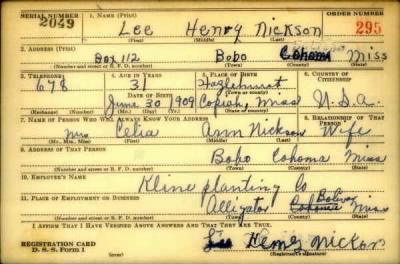 SERIAL NUMBER 1. NAME (Print) ORDER NUMBER
2049 Lee Henry Nickson 295
(First) (Middle) (Last)
2. ADDRESS (Print)
Box 112 Bobo Cohoma Miss
(Number and street or R. F. D. number) (Town) (County) (State)
3. TELEPHONE 4. AGE IN YEARS 5. PLACE OF BIRTH 6. COUNTRY OF CITIZENSHIP
678 31 Hazlehurst
DATE OF BIRTH (Town or county)
June 30 1909 Copiah, Miss U.S.A.
(Exchange) (Number) (Mo.) (Day) (Yr.) (State or country)
7. NAME OF PERSON WHO WILL ALWAYS KNOW YOUR ADDRESS 8. RELATIONSHIP OF THAT PERSON
Mrs Celia Ann Nickson Wife
(Mr., Mrs., Miss) (First) (Middle) (Last)
9. ADDRESS OF THAT PERSON
Bobo Cohoma Miss
(Number and street or R. F. D. number) (Town) (County) (State)
10. EMPLOYER'S NAME
Kline planting Co
11. PLACE OF EMPLOYMENT OR BUSINESS
Alligator Cohoma Bolivar Miss
(Number and street or R. F. D. number) (Town) (County) (State)
I AFFIRM THAT I HAVE VERIFIED ABOVE ANSWERS AND THAT THEY ARE TRUE.
REGISTRATION CARD
D. S. S. Form 1 Lee Henry Nickson
(Registrant's signature)